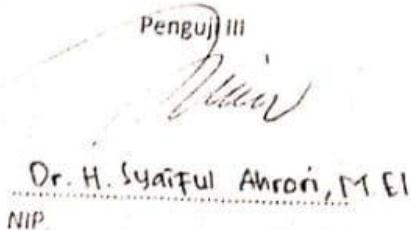 Penguji III
Dr. H. Syaiful Ahrori, M EI
NIP.